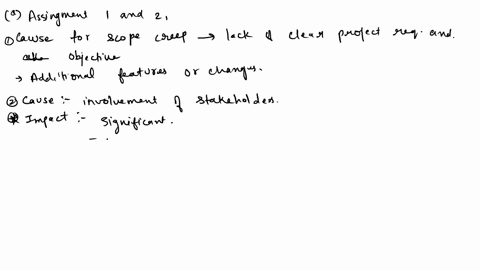 (a) Assingment 1 and 2,
① Cause for scope creep → lack of clear project req. and
objective
→ Additional features or changes.
② Cause :- involvement of stakeholders.
Impact :- Significant.